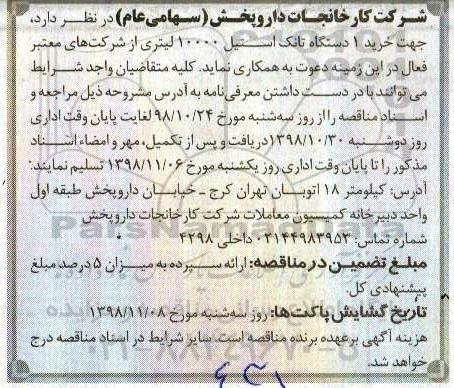 شرکت کارخانجات داروپخش (سهامی عام) در نظر دارد،
جهت خرید ۱ دستگاه تانک استیل ۱۰۰۰۰ لیتری از شرکت‌های معتبر
فعال در این زمینه دعوت به همکاری نماید. کلیه متقاضیان واجد شرایط
می توانند با در دست داشتن معرفی‌نامه به آدرس مشروحه ذیل مراجعه و
اسناد مناقصه را از روز سه‌شنبه مورخ ۹۸/۱۰/۲۴ لغایت پایان وقت اداری
روز دوشنبه ۱۳۹۸/۱۰/۳۰ دریافت و پس از تکمیل، مهر و امضاء اسناد
مذکور را تا پایان وقت اداری روز یکشنبه مورخ ۱۳۹۸/۱۱/۰۶ تسلیم نمایند:
آدرس: کیلومتر ۱۸ اتوبان تهران کرج ـ خیابان داروپخش طبقه اول
واحد دبیرخانه کمیسیون معاملات شرکت کارخانجات داروپخش
شماره تماس: ۰۲۱۴۴۹۸۳۹۵۳ داخلی ۴۲۹۸
مبلغ تضمین در مناقصه: ارائه سپرده به میزان ۵ درصد مبلغ
پیشنهادی کل.
تاریخ گشایش پاکت‌ها: روز سه‌شنبه مورخ ۱۳۹۸/۱۱/۰۸
هزینه آگهی برعهده برنده مناقصه است. سایر شرایط در اسناد مناقصه درج
خواهد شد.